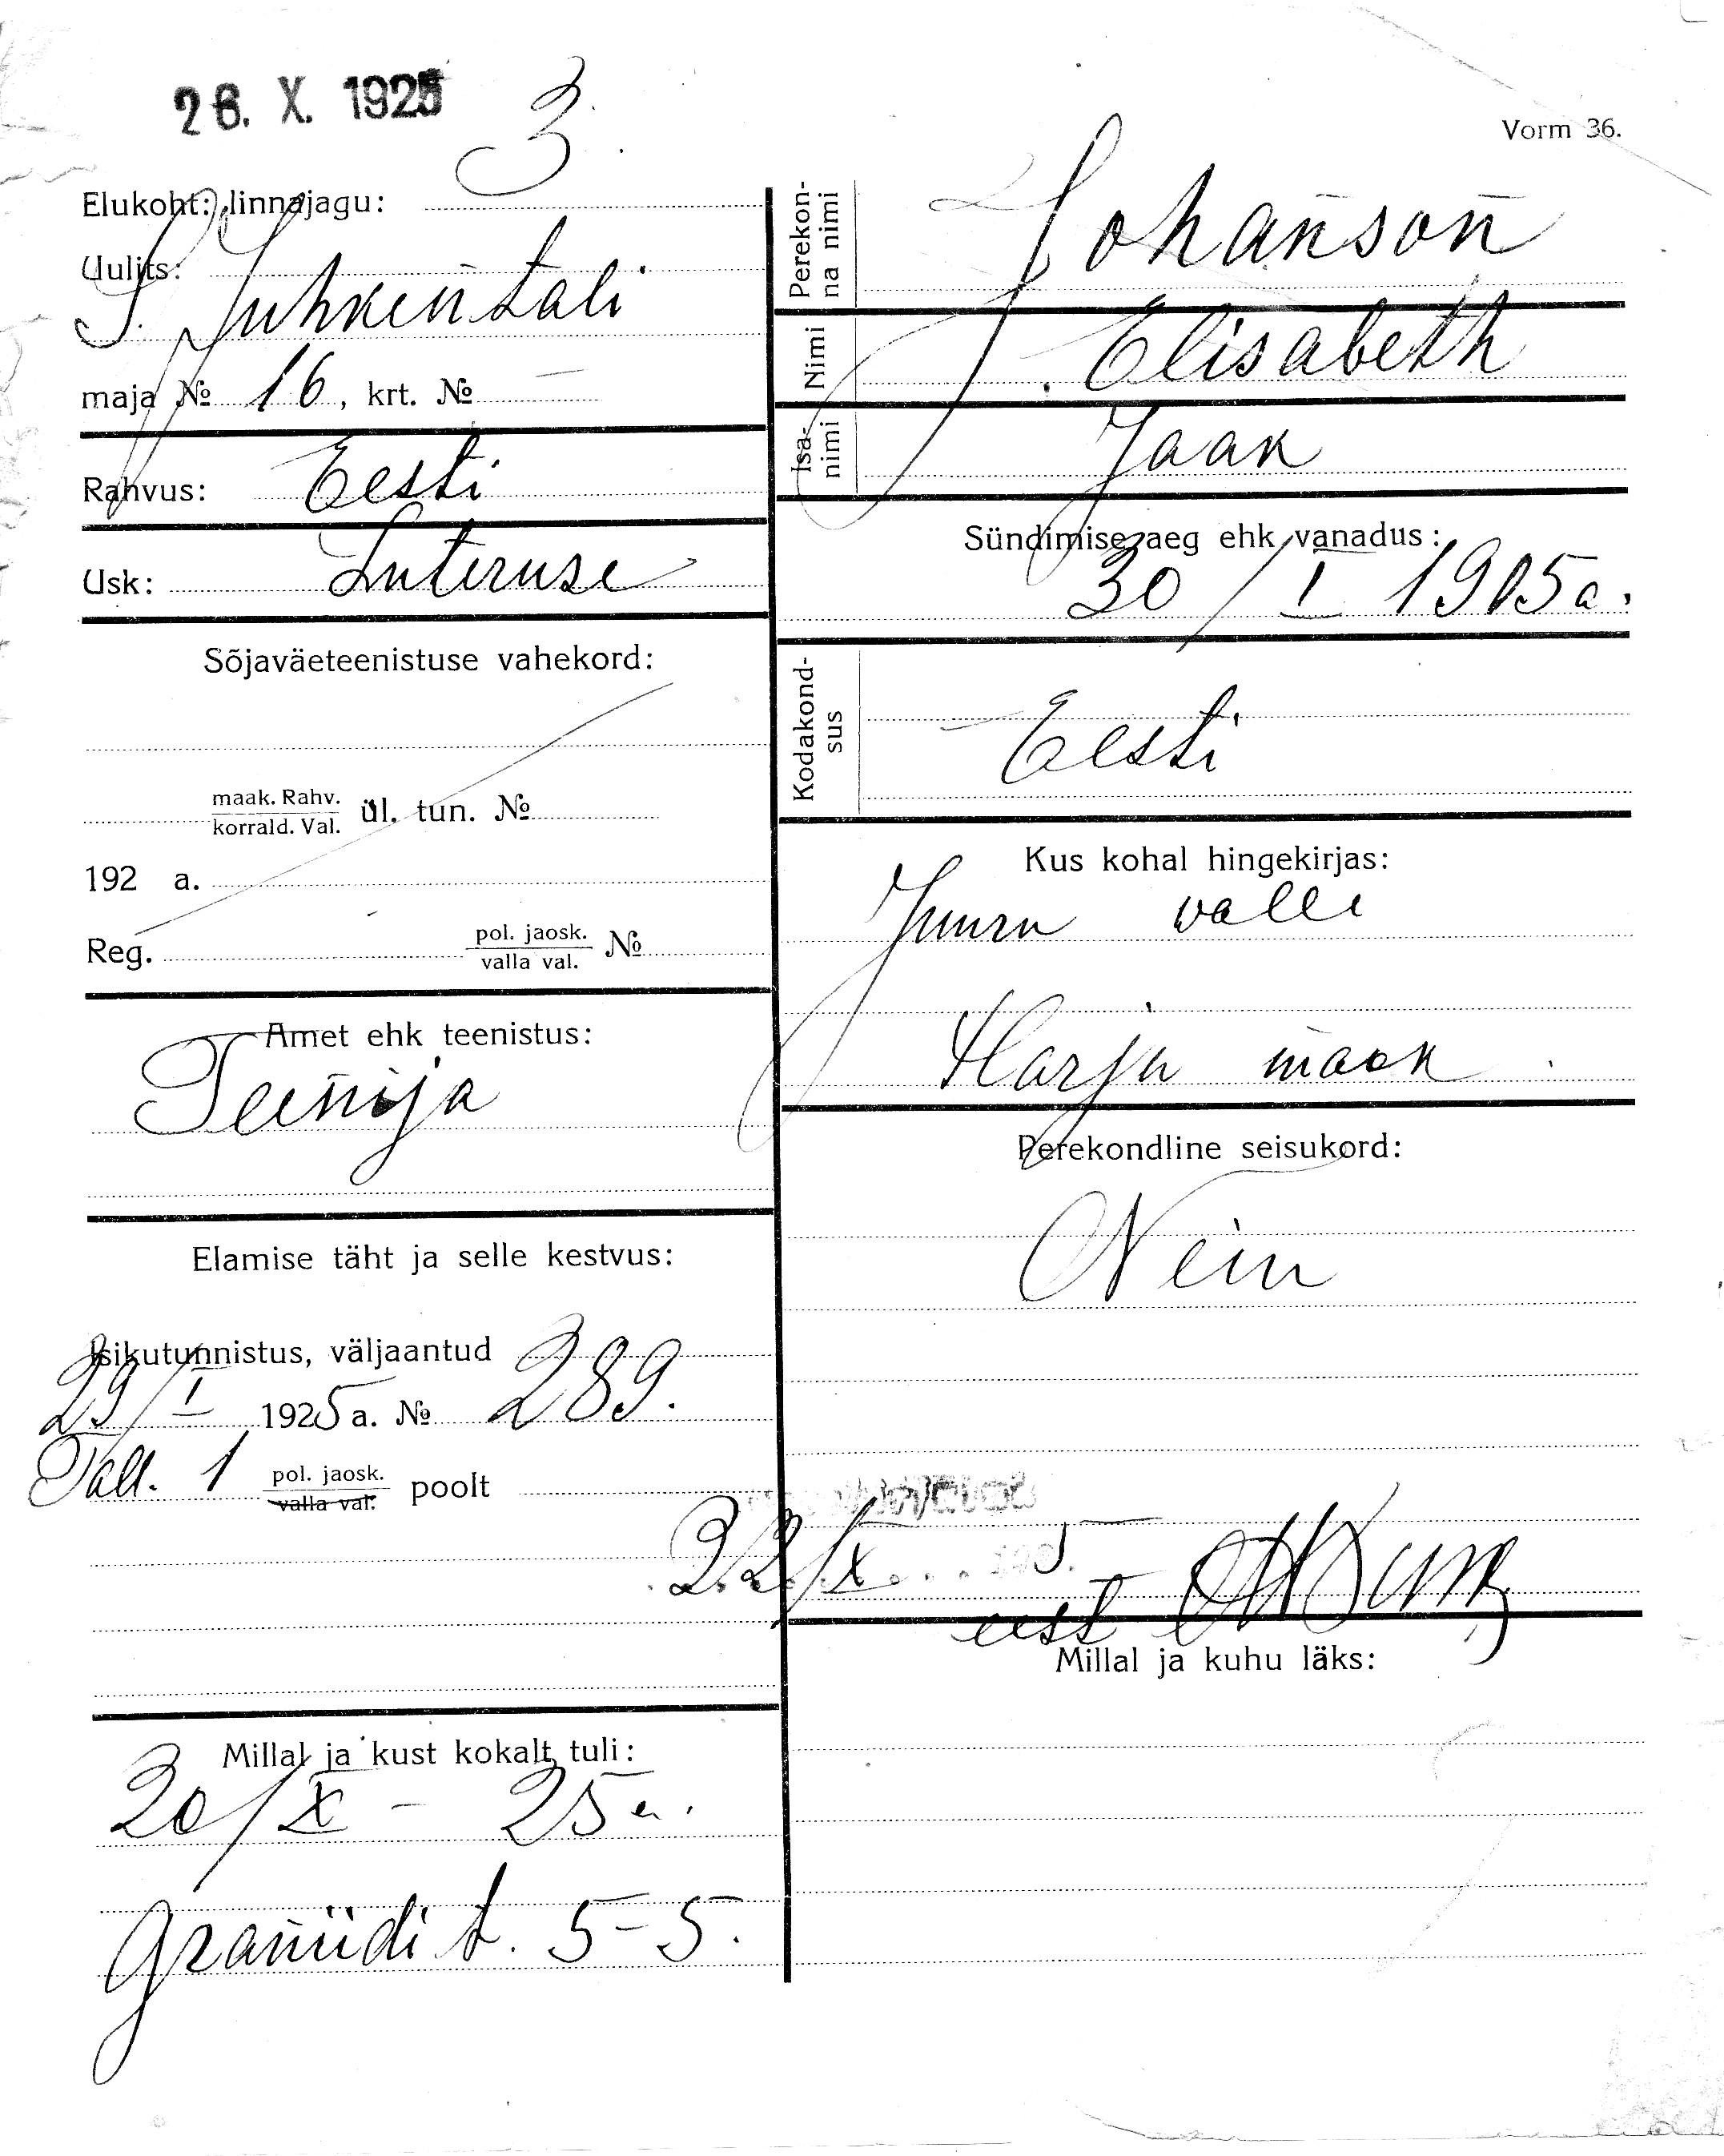 26. X. 1925
3.
Vorm 36.
Elukoht: linnajagu:
Uulits:
S. Juhkentali
maja № 16, krt. № —
Rahvus: Eesti
Usk: Luteruse
Sõjaväeteenistuse vahekord:
maak. Rahv.
korrald. Val. ül. tun. №
192 a.
Reg. pol. jaosk.
valla val. №
Amet ehk teenistus:
Teenija
Elamise täht ja selle kestvus:
Isikutunnistus, väljaantud
29/I 1925 a. № 289.
Tall. 1 pol. jaosk.
valla val. poolt
Millal ja kust kokalt tuli:
20/X - 25 a.
Graniidi t. 5-5.
Perekon-
na nimi
Johanson
Nimi
Elisabeth
Isa-
nimi
Jaak
Sündimise aeg ehk vanadus:
30/I 1905 a.
Kodakond-
sus
Eesti
Kus kohal hingekirjas:
Juuru valla
Harju maak
Perekondline seisukord:
Nein
22/X 5
eest
Millal ja kuhu läks: